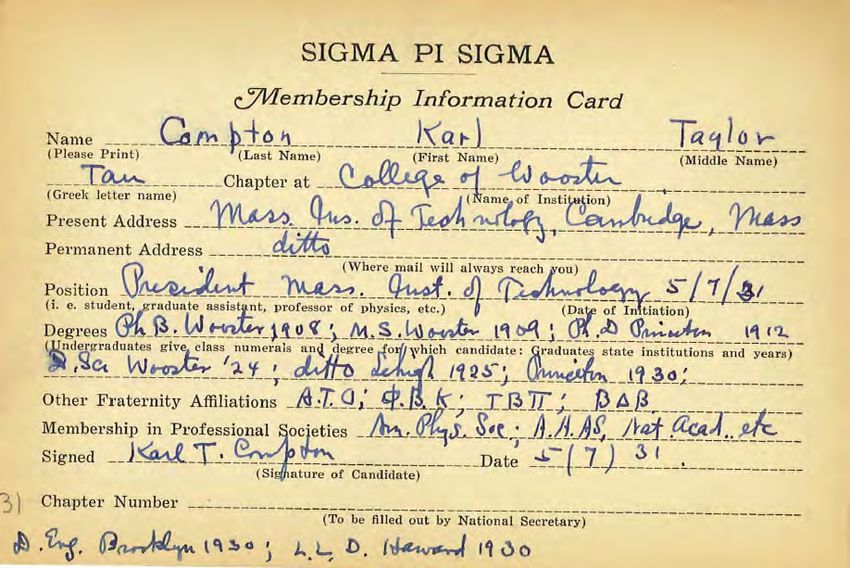 SIGMA PI SIGMA
Membership Information Card
Name Compton Karl Taylor
(Please Print) (Last Name) (First Name) (Middle Name)
Tau Chapter at College of Wooster
(Greek letter name) (Name of Institution)
Present Address Mass. Ins. of Technology, Cambridge, Mass
Permanent Address ditto
(Where mail will always reach you)
Position President Mass. Inst. of Technology 5/7/31
(i. e. student, graduate assistant, professor of physics, etc.) (Date of Initiation)
Degrees Ph B. Wooster 1908; M.S. Wooster 1909; Ph. D Princeton 1912
(Undergraduates give class numerals and degree for which candidate: Graduates state institutions and years)
D.Sci Wooster '24; ditto Lehigh 1925; Princeton 1930;
Other Fraternity Affiliations A.T.Ω; Φ.B.K; TBΠ; BΔB
Membership in Professional Societies Am. Phys. Soc; A.A.AS, Nat. Acad.. etc
Signed Karl T. Compton Date 5/7/31.
(Signature of Candidate)
31 Chapter Number
(To be filled out by National Secretary)
D. Eng. Brooklyn 1930; L.L.D. Harvard 1930